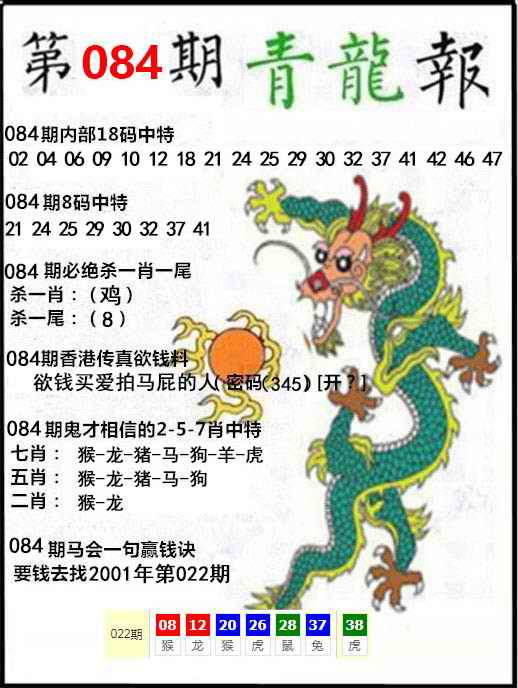 第084期青龍報
084期内部18码中特
02 04 06 09 10 12 18 21 24 25 29 30 32 37 41 42 46 47
084期8码中特
21 24 25 29 30 32 37 41
084 期必绝杀一肖一尾
杀一肖：（鸡）
杀一尾：（8）
084期香港传真欲钱料
欲钱买爱拍马屁的人( 密码(345) [开？]
084期鬼才相信的2-5-7肖中特
七肖： 猴-龙-猪-马-狗-羊-虎
五肖： 猴-龙-猪-马-狗
二肖： 猴-龙
084 期马会一句赢钱诀
要钱去找2001年第022期
022期 08 12 20 26 28 37 38
猴 龙 猴 虎 鼠 兔 虎